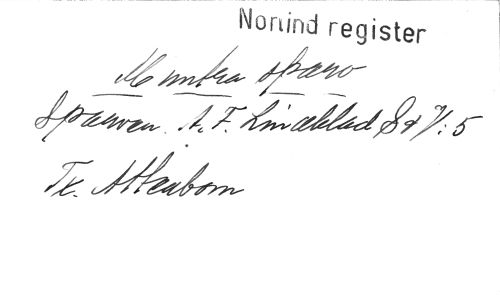 Norlind register
Muntra sparv
Sparven. A. F. Lindblad S&V: 5
Tx. Atterbom